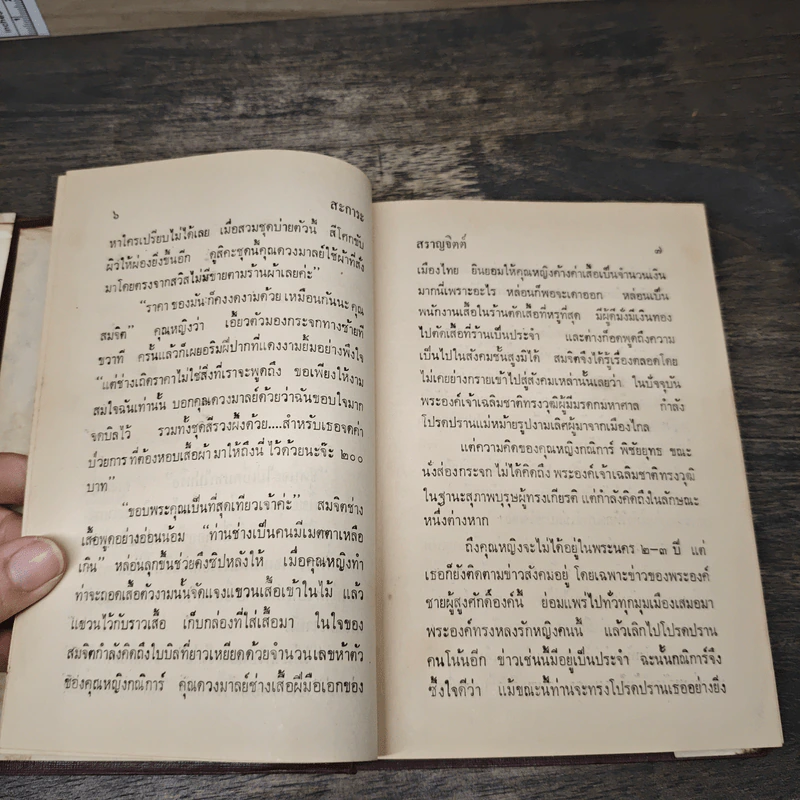 ๖ สะการะ
หาใครเปรียบไม่ได้เลย เมื่อสวมชุดบ่ายตัวนี้ สีโศกขับ
ผิวให้ผ่องยิ่งขึ้นอีก ดูสิคะชุดนี้คุณดวงมาลย์ใช้ผ้าที่สั่ง
มาโดยตรงจากสวิสไม่มีขายตามร้านผ้าเลยค่ะ”
“ราคา ของมันก็คงงดงามด้วย เหมือนกันนะ คุณ
สมจิต” คุณหญิงว่า เอี้ยวตัวมองกระจกทางซ้ายที
ขวาที ครั้นแล้วก็เผยอริมฝีปากที่แดงงามยิ้มอย่างพึงใจ
“แต่ช่างเถิดราคาไม่ใช่สิ่งที่เราจะพูดถึง ขอเพียงให้งาม
สมใจฉันเท่านั้น บอกคุณดวงมาลย์ด้วยว่าฉันขอบใจมาก
จดบิลไว้ รวมทั้งชุดสีรวงผึ้งด้วย....สำหรับเธอจดค่า
ป่วยการ ที่ต้องหอบเสื้อผ้า มาให้ถึงนี่ ไว้ด้วยนะจ๊ะ ๒๐๐
บาท”
“ขอบพระคุณเป็นที่สุดเทียวเจ้าค่ะ” สมจิตช่าง
เสื้อพูดอย่างอ่อนน้อม “ท่านช่างเป็นคนมีเมตตาเหลือ
เกิน” หล่อนลุกขึ้นช่วยดึงซิปหลังให้ เมื่อคุณหญิงทำ
ท่าจะถอดเสื้อตัวงามนั้นจัดแจงแขวนเสื้อเข้าในไม้ แล้ว
แขวนไว้กับราวเสื้อ เก็บกล่องที่ใส่เสื้อมา ในใจของ
สมจิตกำลังคิดถึงใบบิลที่ยาวเหยียดด้วยจำนวนเลขห้าตัว
ของคุณหญิงกณิการ์ คุณดวงมาลย์ช่างเสื้อฝีมือเอกของ
สราญจิตต์ ๗
เมืองไทย ยินยอมให้คุณหญิงค้างค่าเสื้อเป็นจำนวนเงิน
มากนี่เพราะอะไร หล่อนก็พอจะเดาออก หล่อนเป็น
พนักงานเสื้อในร้านตัดเสื้อที่หรูที่สุด มีผู้ดีมั่งมีเงินทอง
ไปตัดเสื้อที่ร้านเป็นประจำ และต่างก็อดพูดถึงความ
เป็นไปในสังคมชั้นสูงมิได้ สมจิตจึงได้รู้เรื่องตลอดโดย
ไม่เคยย่างกรายเข้าไปสู่สังคมเหล่านั้นเลยว่า ในปัจจุบัน
พระองค์เจ้าเฉลิมชาติทรงวุฒิผู้มีมรดกมหาศาล กำลัง
โปรดปรานแม่หม้ายรูปงามเลิศผู้มาจากเมืองไกล
แต่ความคิดของคุณหญิงกณิการ์ พิชัยยุทธ ขณะ
นั่งส่องกระจก ไม่ได้คิดถึง พระองค์เจ้าเฉลิมชาติทรงวุฒิ
ในฐานะสุภาพบุรุษผู้ทรงเกียรติ แต่กำลังคิดถึงในลักษณะ
หนึ่งต่างหาก
ถึงคุณหญิงจะไม่ได้อยู่ในพระนคร ๒–๓ ปี แต่
เธอก็ยังติดตามข่าวสังคมอยู่ โดยเฉพาะข่าวของพระองค์
ชายผู้สูงศักดิ์องค์นี้ ย่อมแพร่ไปทั่วทุกมุมเมืองเสมอมา
พระองค์ทรงหลงรักหญิงคนนี้ แล้วเลิกไปโปรดปราน
คนโน้นอีก ข่าวเช่นนี้มีอยู่เป็นประจำ ฉะนั้นกณิการ์จึง
ซึ้งใจดีว่า แม้ขณะนี้ท่านจะทรงโปรดปรานเธออย่างยิ่ง